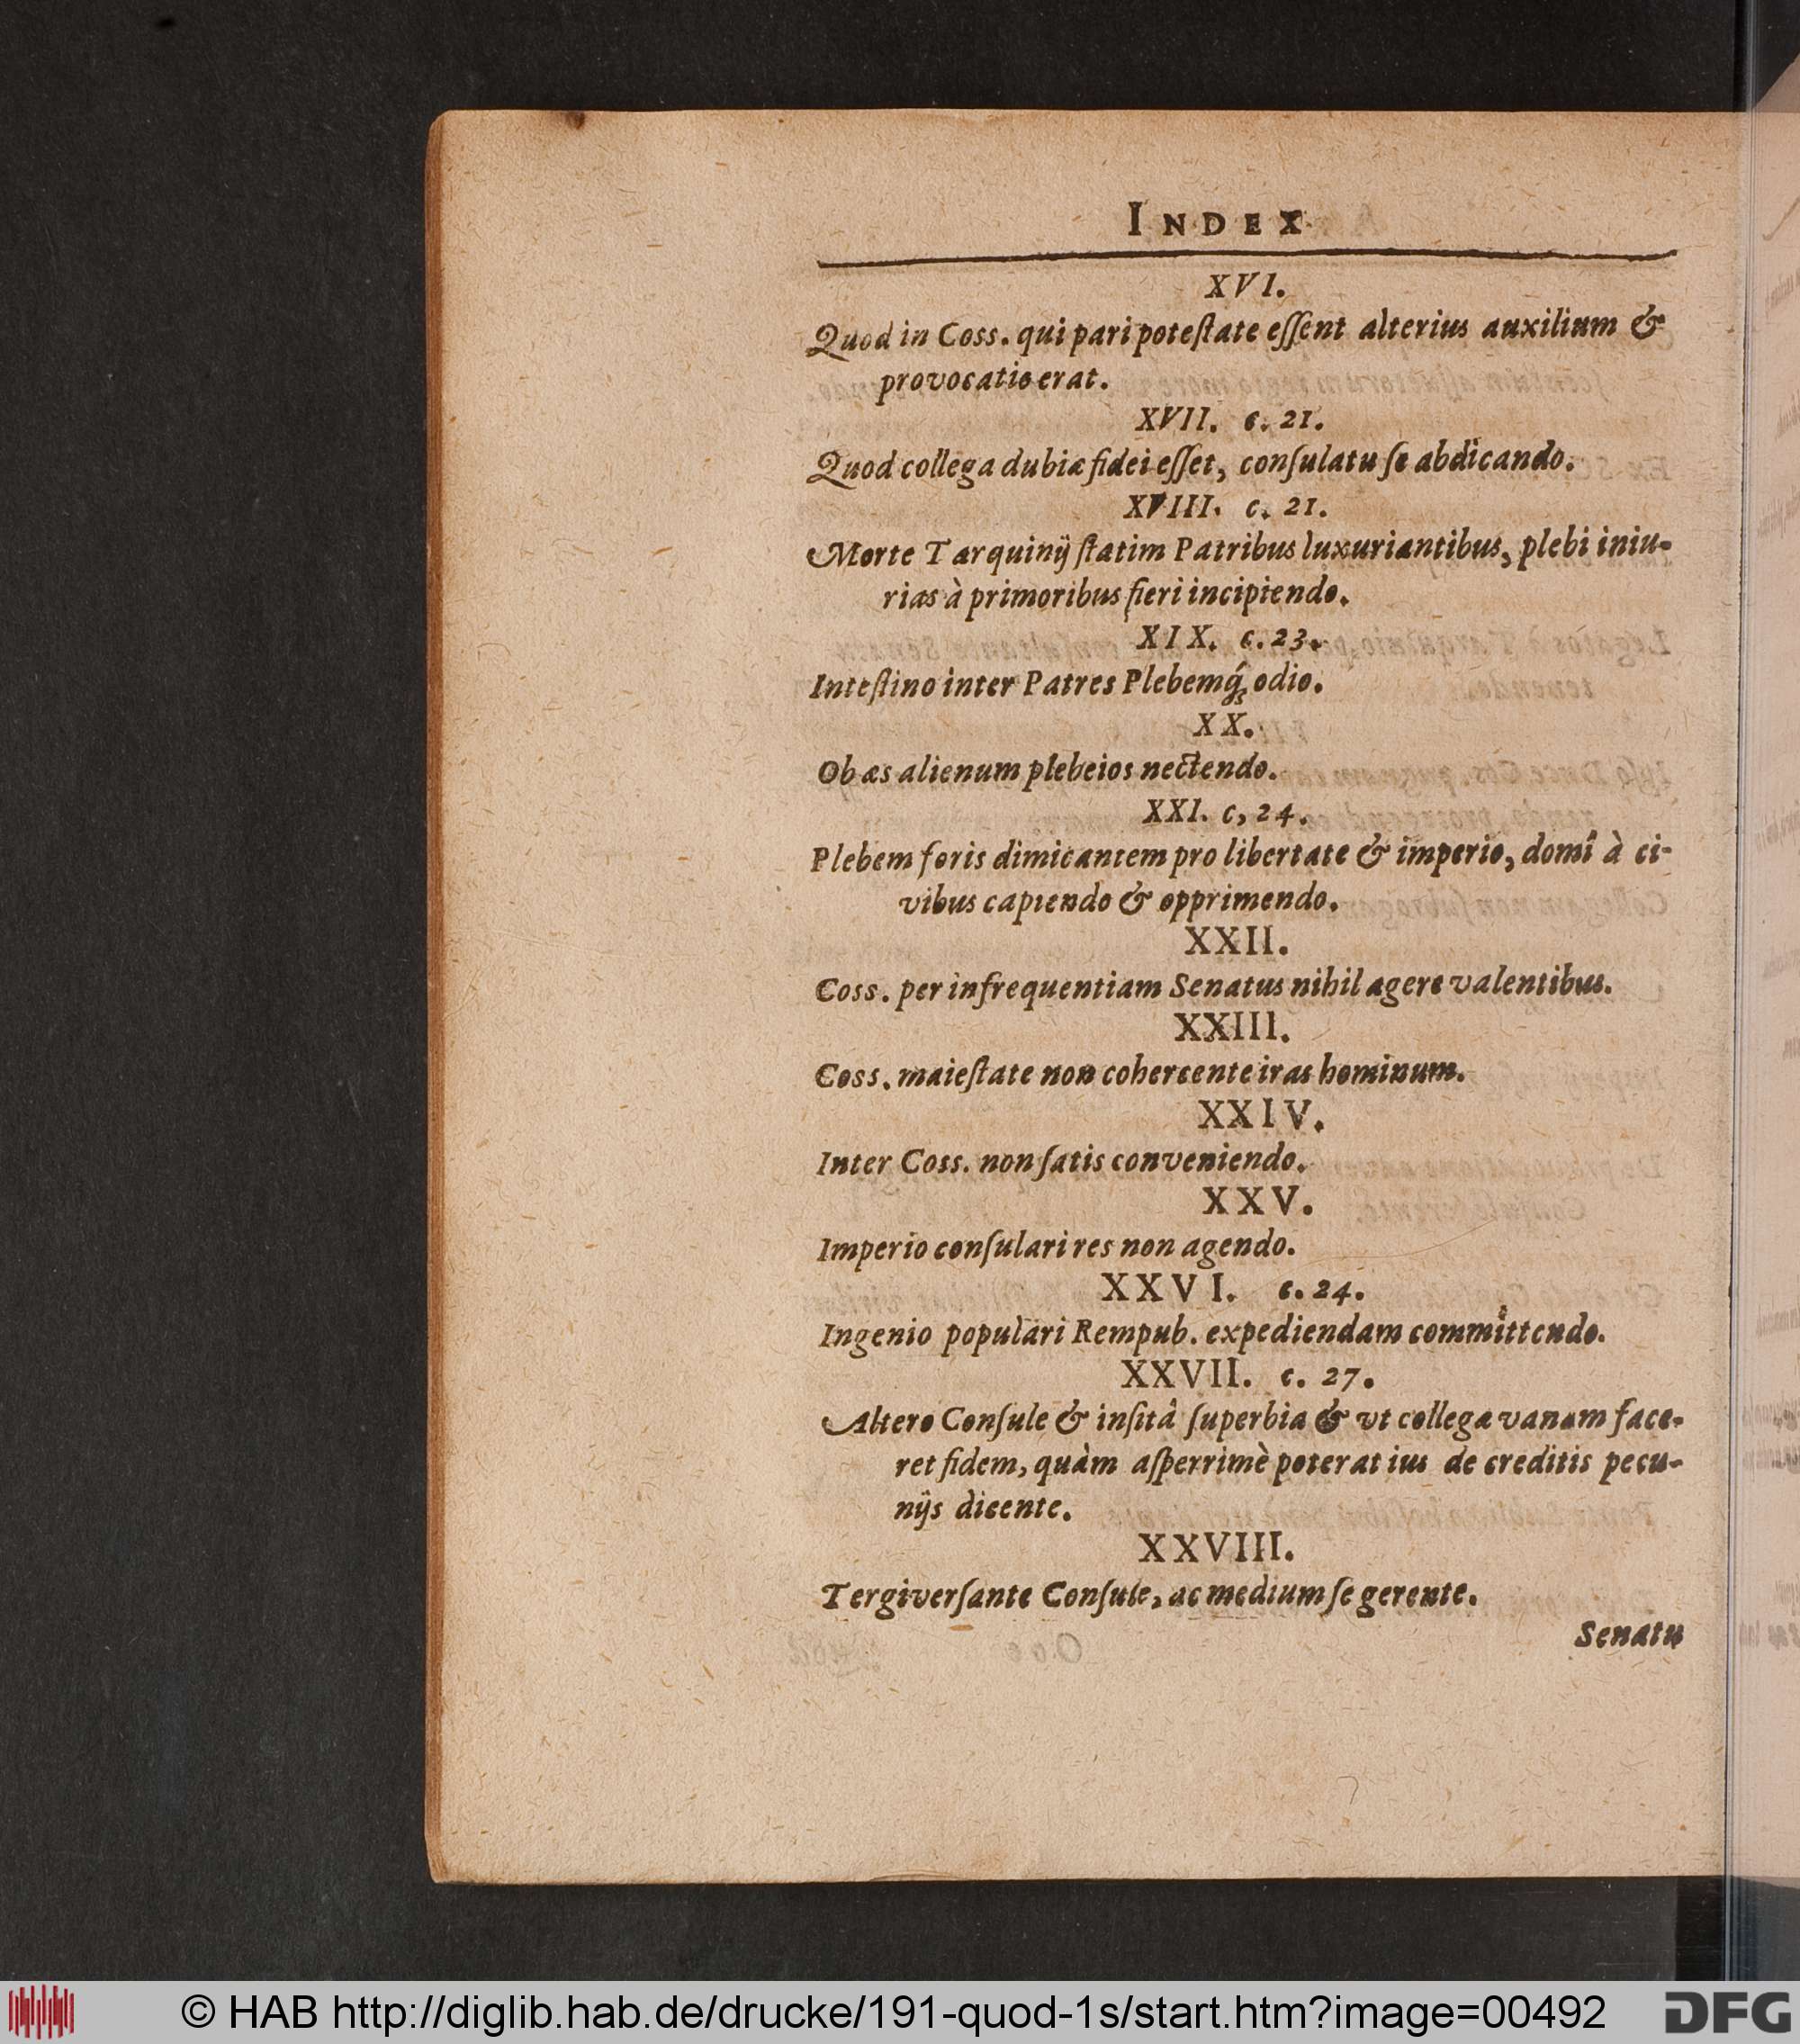 INDEX
XVI.
Quod in Coss. qui pari poteſtate eſſent alterius auxilium &
provocatio erat.
XVII. c. 21.
Quod collega dubiæ fidei eſſet, conſulatu ſe abdicando.
XVIII. c. 21.
Morte Tarquinij ſtatim Patribus luxuriantibus, plebi iniu-
rias à primoribus fieri incipiendo.
XIX. c. 23.
Inteſtino inter Patres Plebemq́; odio.
XX.
Ob æs alienum plebeios nectendo.
XXI. c, 24.
Plebem foris dimicantem pro libertate & imperio, domî à ci-
vibus capiendo & opprimendo.
XXII.
Coss. per infrequentiam Senatus nihil agere valentibus.
XXIII.
Coss. maieſtate non cohercente iras hominum.
XXIV.
Inter Coss. non ſatis conveniendo.
XXV.
Imperio conſulari res non agendo.
XXVI. c. 24.
Ingenio populari Rempub. expediendam committendo.
XXVII. c. 27.
Altero Conſule & inſitâ ſuperbia & vt collegæ vanam face-
ret fidem, quàm aſperrimè poterat ius de creditis pecu-
nijs dicente.
XXVIII.
Tergiverſante Conſule, ac medium ſe gerente.
Senatu
© HAB http://diglib.hab.de/drucke/191-quod-1s/start.htm?image=00492
DFG